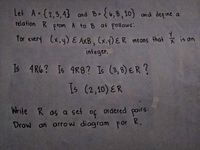 Let A = {2,3,4} and B = {6,8,10} and define a
relation R from A to B as follows:
For every (x,y) ∈ AxB, (x,y) ∈ R means that y/x is an
integer.
Is 4R6? Is 4R8? Is (3,8) ∈ R?
Is (2,10) ∈ R
Write R as a set of ordered pairs.
Draw an arrow diagram for R.